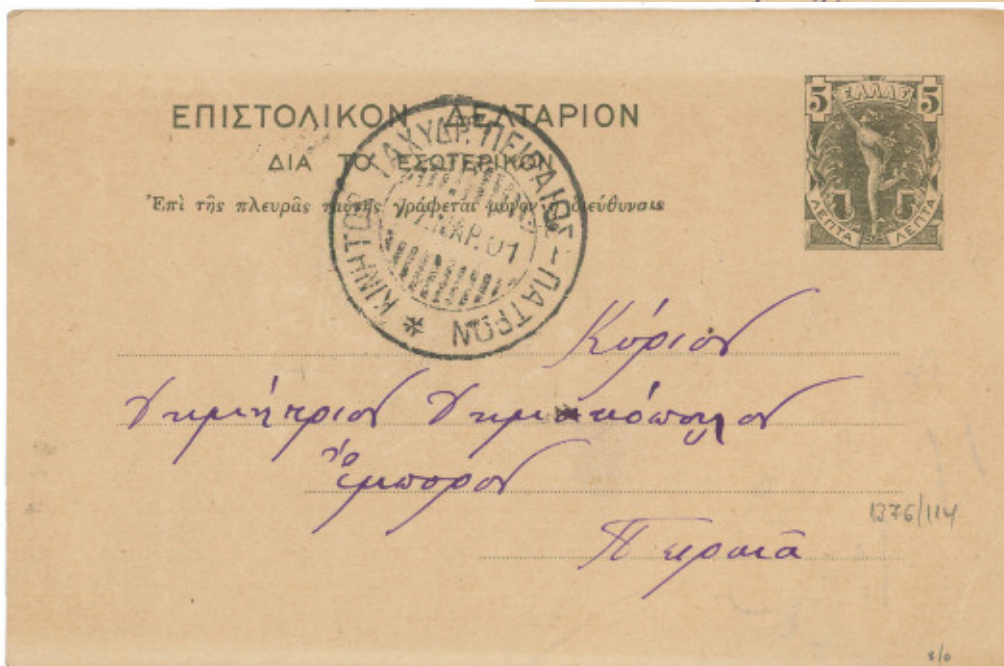 ΕΠΙΣΤΟΛΙΚΟΝ ΔΕΛΤΑΡΙΟΝ
ΔΙΑ ΤΟ ΕΣΩΤΕΡΙΚΟΝ
Ἐπὶ τῆς πλευρᾶς ταύτης γράφεται μόνον ἡ διεύθυνσις
5 ΕΛΛΑΣ 5
ΛΕΠΤΑ ΛΕΠΤΑ
ΚΙΝΗΤΟΝ ΤΑΧΥΔΡ. ΠΕΙΡΑΙΩΣ - ΠΑΤΡΩΝ
ΜΑΡ. 01
Κύριον
Δημήτριον
ἔμπορον
Πειραιᾶ
1376/114